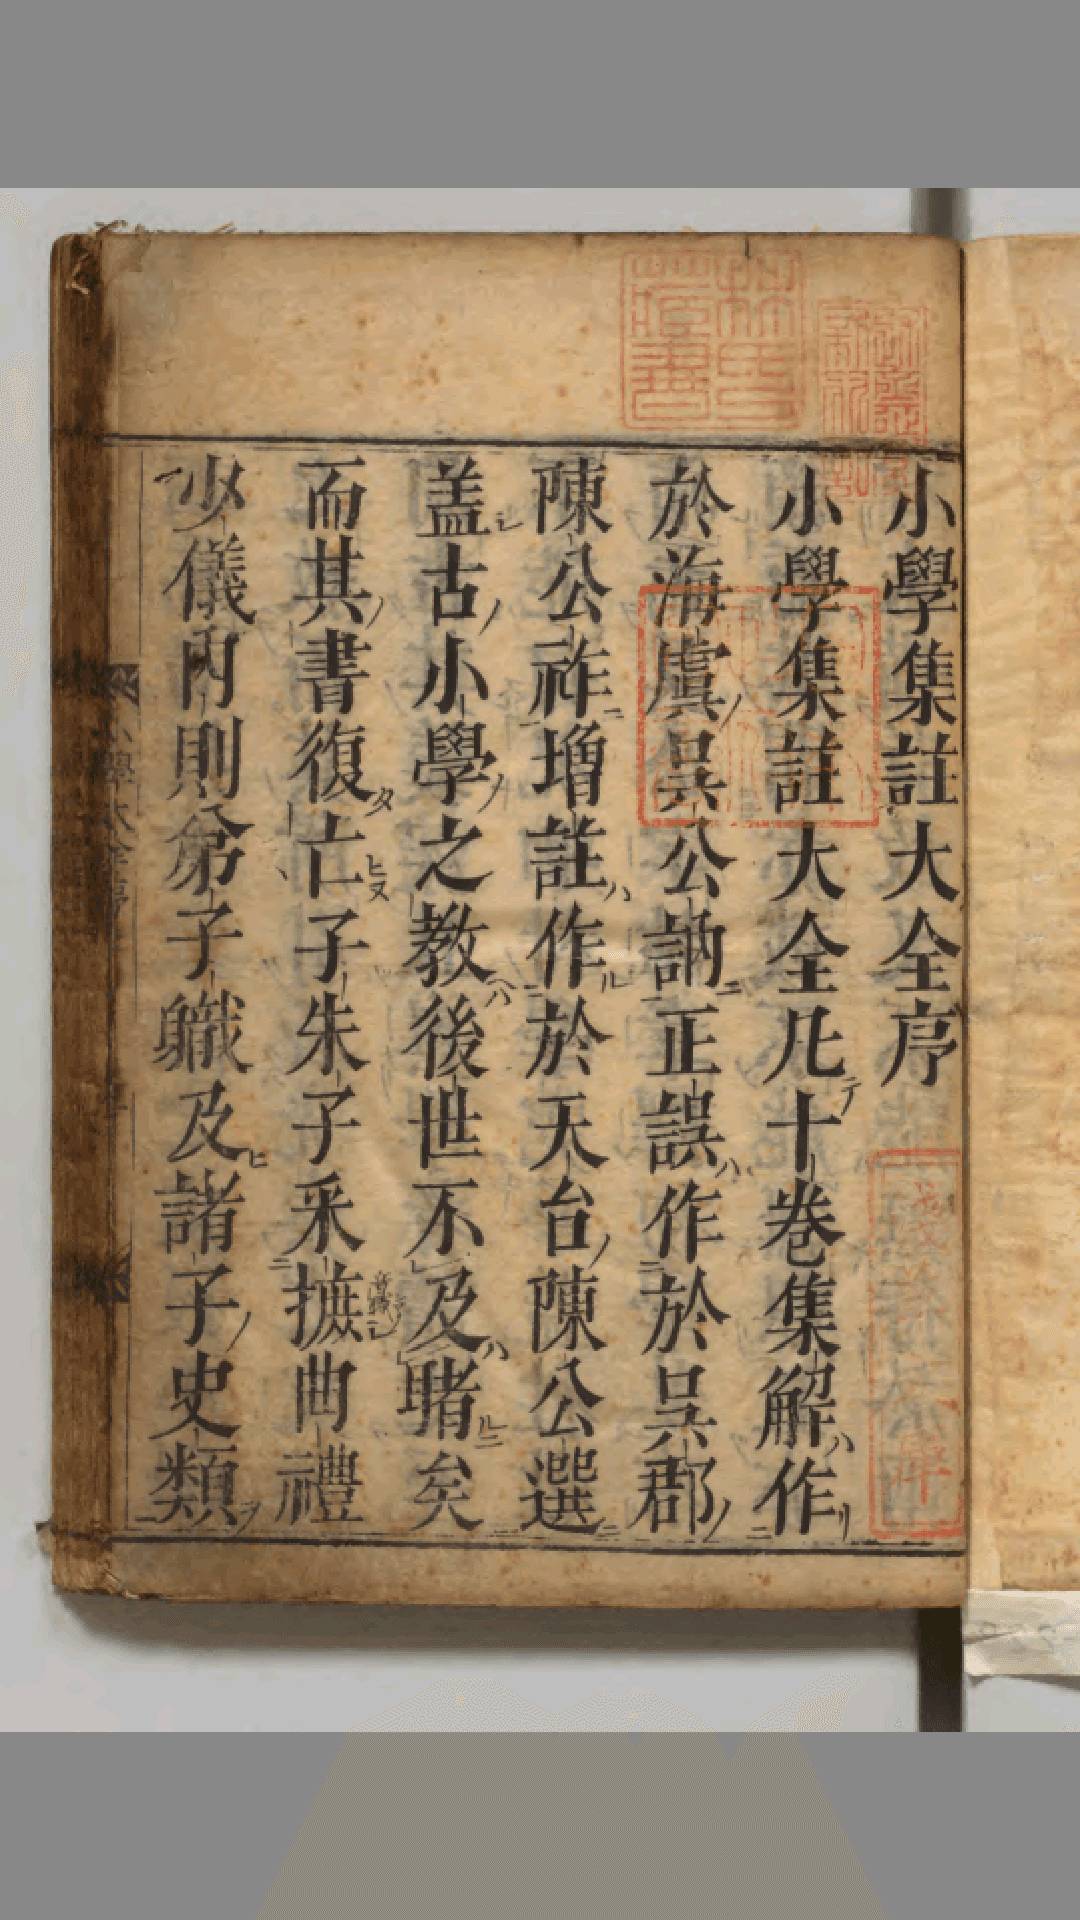 小學集註大全序
小學集註大全凡十卷集解作
於海虞吳公訥正誤作於吳郡
陳公祚増註作於天台陳公選
盖古小學之教後世不及睹矣
而其書復亡子朱子采摭曲禮
少儀內則弟子職及諸子史類
林氏藏書